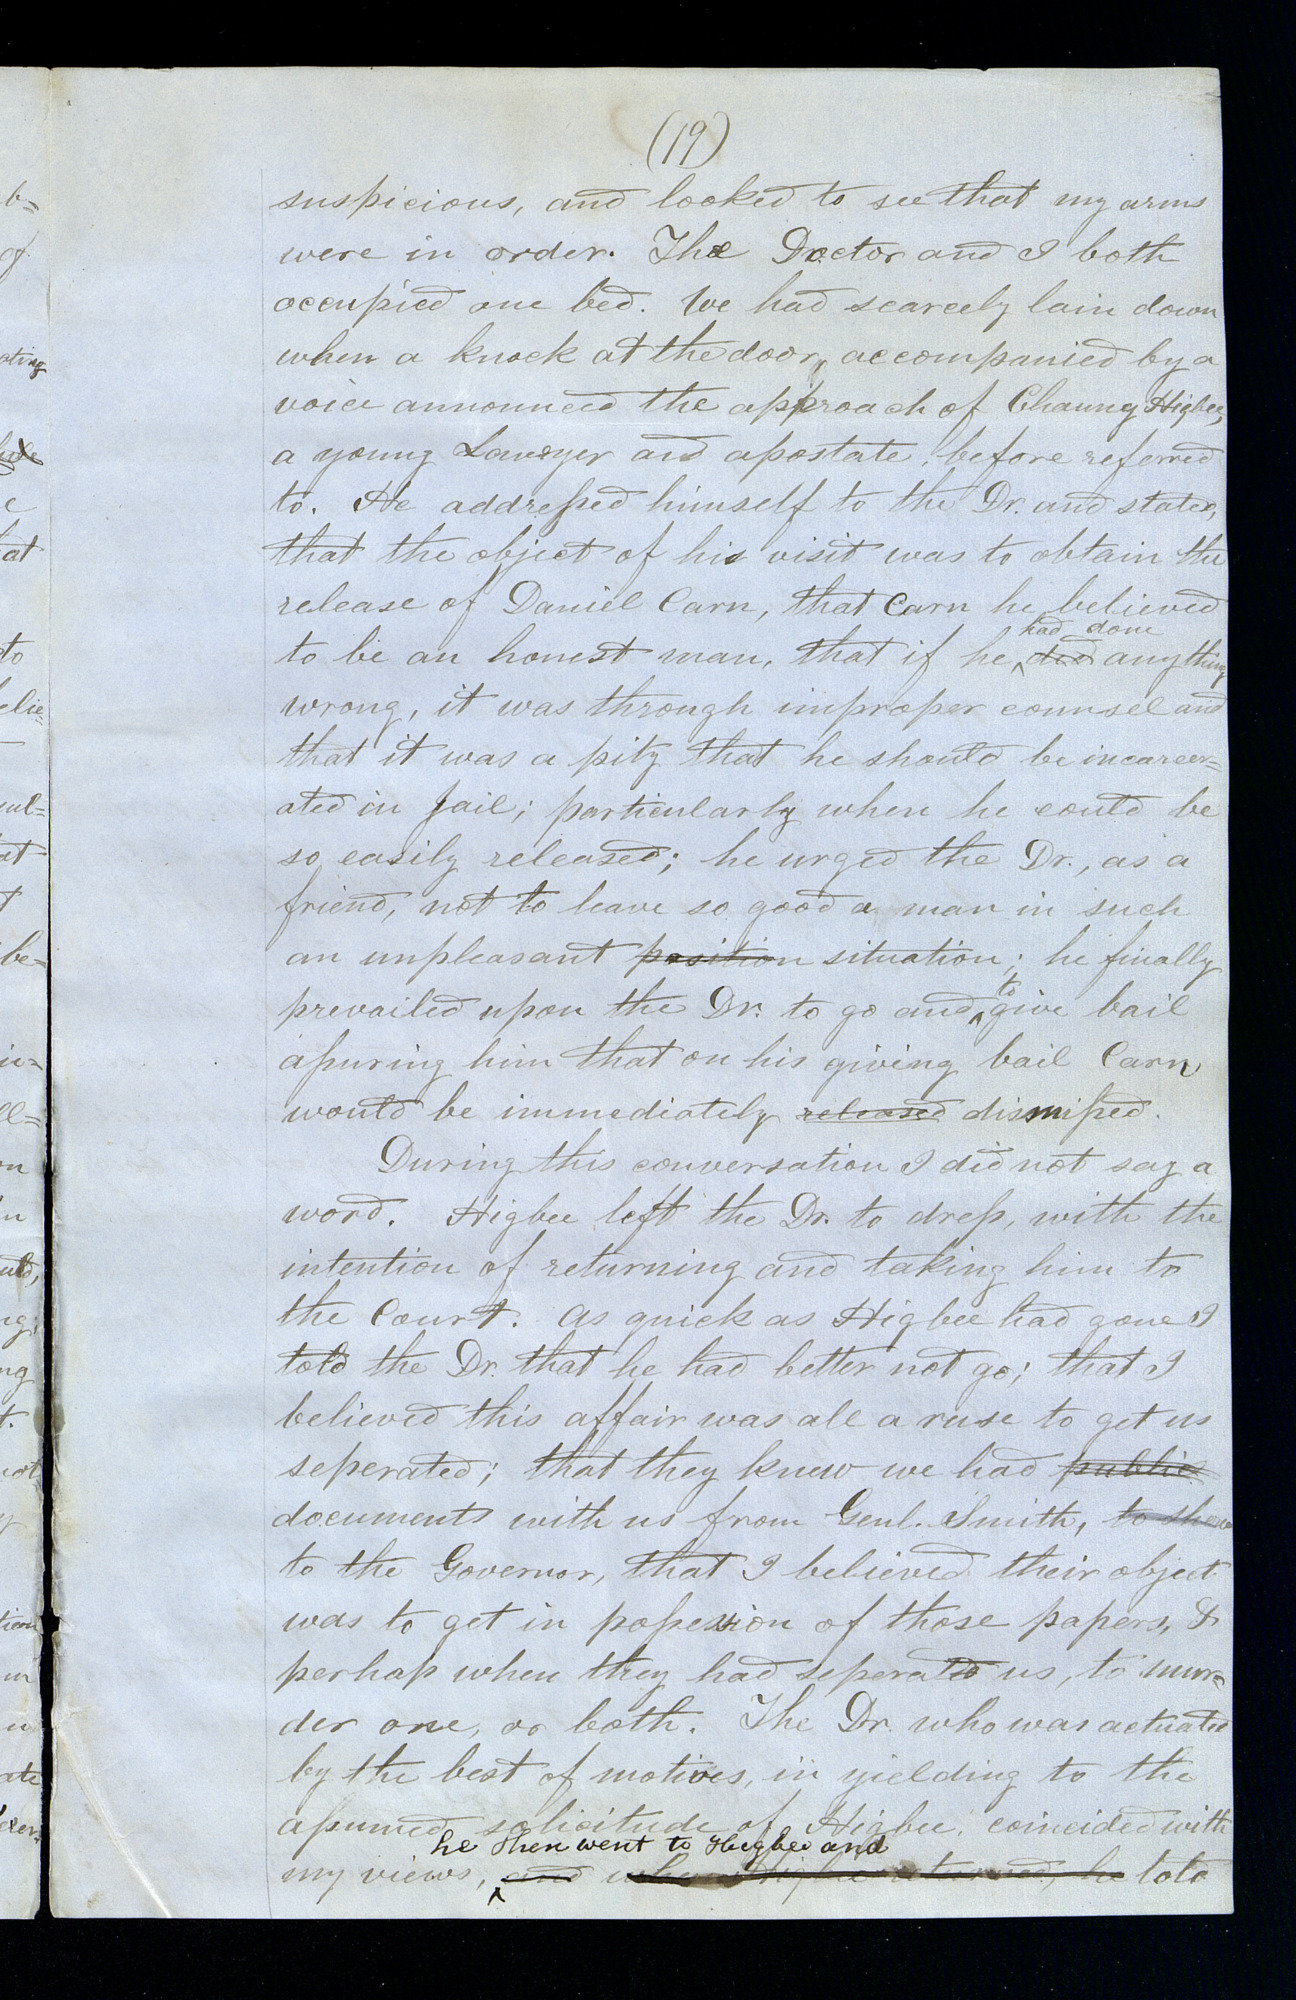 (19)
suspicious, and looked to see that my arms
were in order. The Doctor and I both
occupied one bed. We had scarcely lain down
when a knock at the door, accompanied by a
voice announced the approach of Chauncy Higbee,
a young Lawyer and apostate, before referred
to. He addressed himself to the Dr. and stated,
that the object of his visit was to obtain the
release of Daniel Carn, that Carn he believed
had done
to be an honest man, that if he did anything
wrong, it was through improper counsel and
that it was a pity that he should be incarcer=
ated in Jail; particularly when he could be
so easily released; he urged the Dr., as a
friend, not to leave so good a man in such
an unpleasant position situation; he finally
to
prevailed upon the Dr. to go and give bail
assuring him that on his giving bail Carn
would be immediately released dismissed.
During this conversation I did not say a
word. Higbee left the Dr. to dress, with the
intention of returning and taking him to
the Court. As quick as Higbee had gone I
told the Dr. that he had better not go; that I
believed this affair was all a ruse to get us
seperated; that they knew we had public
documents with us from Genl. Smith, to shew
to the Governor, that I believed their object
was to get in possession of those papers, &
perhap when they had seperated us, to mur=
der one, or both. The Dr. who was actuated
by the best of motives, in yielding to the
assumed solicitude of Higbee, coincided with
he then went to Higbee and
my views, and when Higbee returned, he told
b=
of
ating
e
hat
to
elie=
ul=
at
t
be=
in=
ll=
on
in
uld,
ng
ng
t.
not
y
tion
m
u
ate